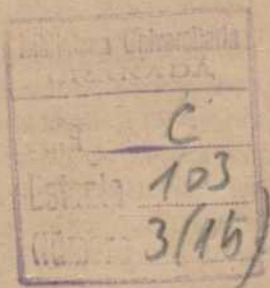 Biblioteca Universitaria
GRANADA
C
Estante 103
Número 3(15)